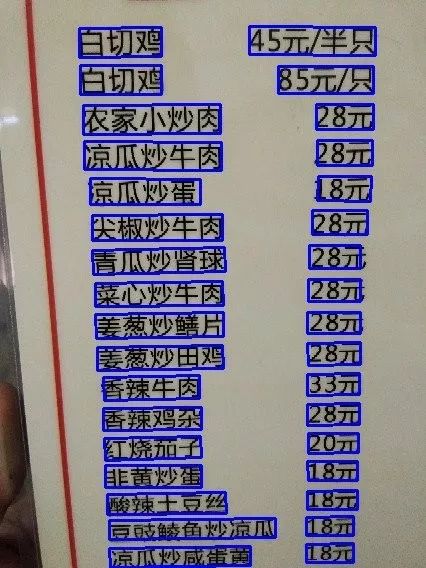 白切鸡 45元/半只
白切鸡 85元/只
农家小炒肉 28元
凉瓜炒牛肉 28元
凉瓜炒蛋 18元
尖椒炒牛肉 28元
青瓜炒肾球 28元
菜心炒牛肉 28元
姜葱炒鳝片 28元
姜葱炒田鸡 28元
香辣牛肉 33元
香辣鸡杂 28元
红烧茄子 20元
韭黄炒蛋 18元
酸辣土豆丝 18元
豆豉鲮鱼炒凉瓜 18元
凉瓜炒咸蛋黄 18元